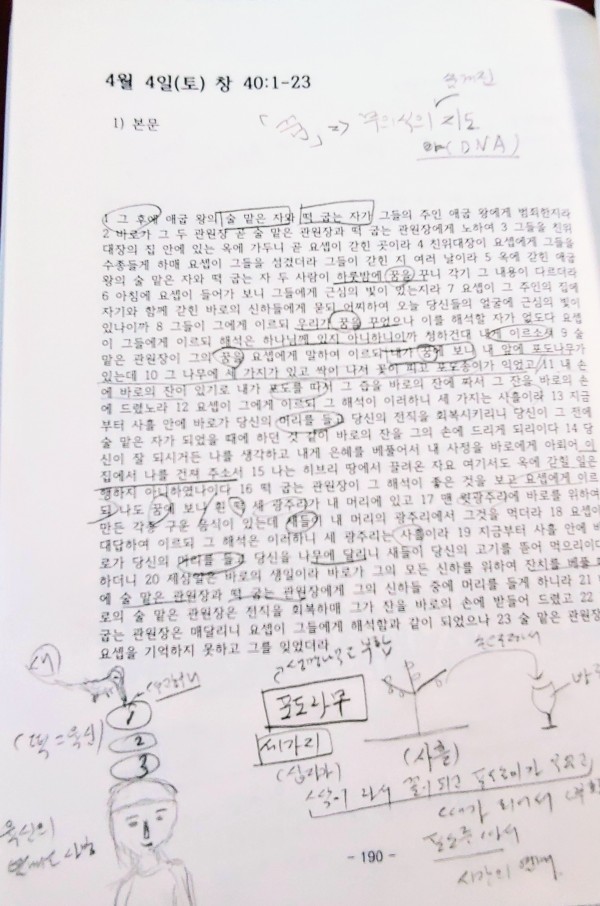 4월 4일(토) 창 40:1-23
1) 본문
「꿈」 => 무의식의 지도
(DNA)
1 그 후에 애굽 왕의 술 맡은 자와 떡 굽는 자가 그들의 주인 애굽 왕에게 범죄한지라
2 바로가 그 두 관원장 곧 술 맡은 관원장과 떡 굽는 관원장에게 노하여 3 그들을 친위
대장의 집 안에 있는 옥에 가두니 곧 요셉이 갇힌 곳이라 4 친위대장이 요셉에게 그들을
수종들게 하매 요셉이 그들을 섬겼더라 그들이 갇힌 지 여러 날이라 5 옥에 갇힌 애굽
왕의 술 맡은 자와 떡 굽는 자 두 사람이 하룻밤에 꿈을 꾸니 각기 그 내용이 다르더라
6 아침에 요셉이 들어가 보니 그들에게 근심의 빛이 있는지라 7 요셉이 그 주인의 집에
자기와 함께 갇힌 바로의 신하들에게 묻되 어찌하여 오늘 당신들의 얼굴에 근심의 빛이
있나이까 8 그들이 그에게 이르되 우리가 꿈을 꾸었으나 이를 해석할 자가 없도다 요셉
이 그들에게 이르되 해석은 하나님께 있지 아니하니이까 청하건대 내게 이르소서 9 술
맡은 관원장이 그의 꿈을 요셉에게 말하여 이르되 내가 꿈에 보니 내 앞에 포도나무가
있는데 10 그 나무에 세 가지가 있고 싹이 나서 꽃이 피고 포도송이가 익었고 11 내 손
에 바로의 잔이 있기로 내가 포도를 따서 그 즙을 바로의 잔에 짜서 그 잔을 바로의 손
에 드렸노라 12 요셉이 그에게 이르되 그 해석이 이러하니 세 가지는 사흘이라 13 지금
부터 사흘 안에 바로가 당신의 머리를 들고 당신의 전직을 회복시키리니 당신이 그 전에
술 맡은 자가 되었을 때에 하던 것 같이 바로의 잔을 그의 손에 드리게 되리이다 14 당
신이 잘 되시거든 나를 생각하고 내게 은혜를 베풀어서 내 사정을 바로에게 아뢰어 이
집에서 나를 건져 주소서 15 나는 히브리 땅에서 끌려온 자요 여기서도 옥에 갇힐 일은
행하지 아니하였나이다 16 떡 굽는 관원장이 그 해석이 좋은 것을 보고 요셉에게 이르
되 나도 꿈에 보니 흰 떡 세 광주리가 내 머리에 있고 17 맨 윗광주리에 바로를 위하여
만든 각종 구운 음식이 있는데 새들이 내 머리의 광주리에서 그것을 먹더라 18 요셉이
대답하여 이르되 그 해석은 이러하니 세 광주리는 사흘이라 19 지금부터 사흘 안에 바
로가 당신의 머리를 들고 당신을 나무에 달리니 새들이 당신의 고기를 뜯어 먹으리이다
하더니 20 제삼일은 바로의 생일이라 바로가 그의 모든 신하를 위하여 잔치를 베풀
에 술 맡은 관원장과 떡 굽는 관원장에게 그의 신하들 중에 머리를 들게 하니라 21
로의 술 맡은 관원장은 전직을 회복하매 그가 잔을 바로의 손에 받들어 드렸고 22
굽는 관원장은 매달리니 요셉이 그들에게 해석함과 같이 되었으나 23 술 맡은 관원장
요셉을 기억하지 못하고 그를 잊었더라
(새)
1
2
3
(떡=육신)
육신의
포도나무
세가지
(십자가)
(사흘)
- 190 -